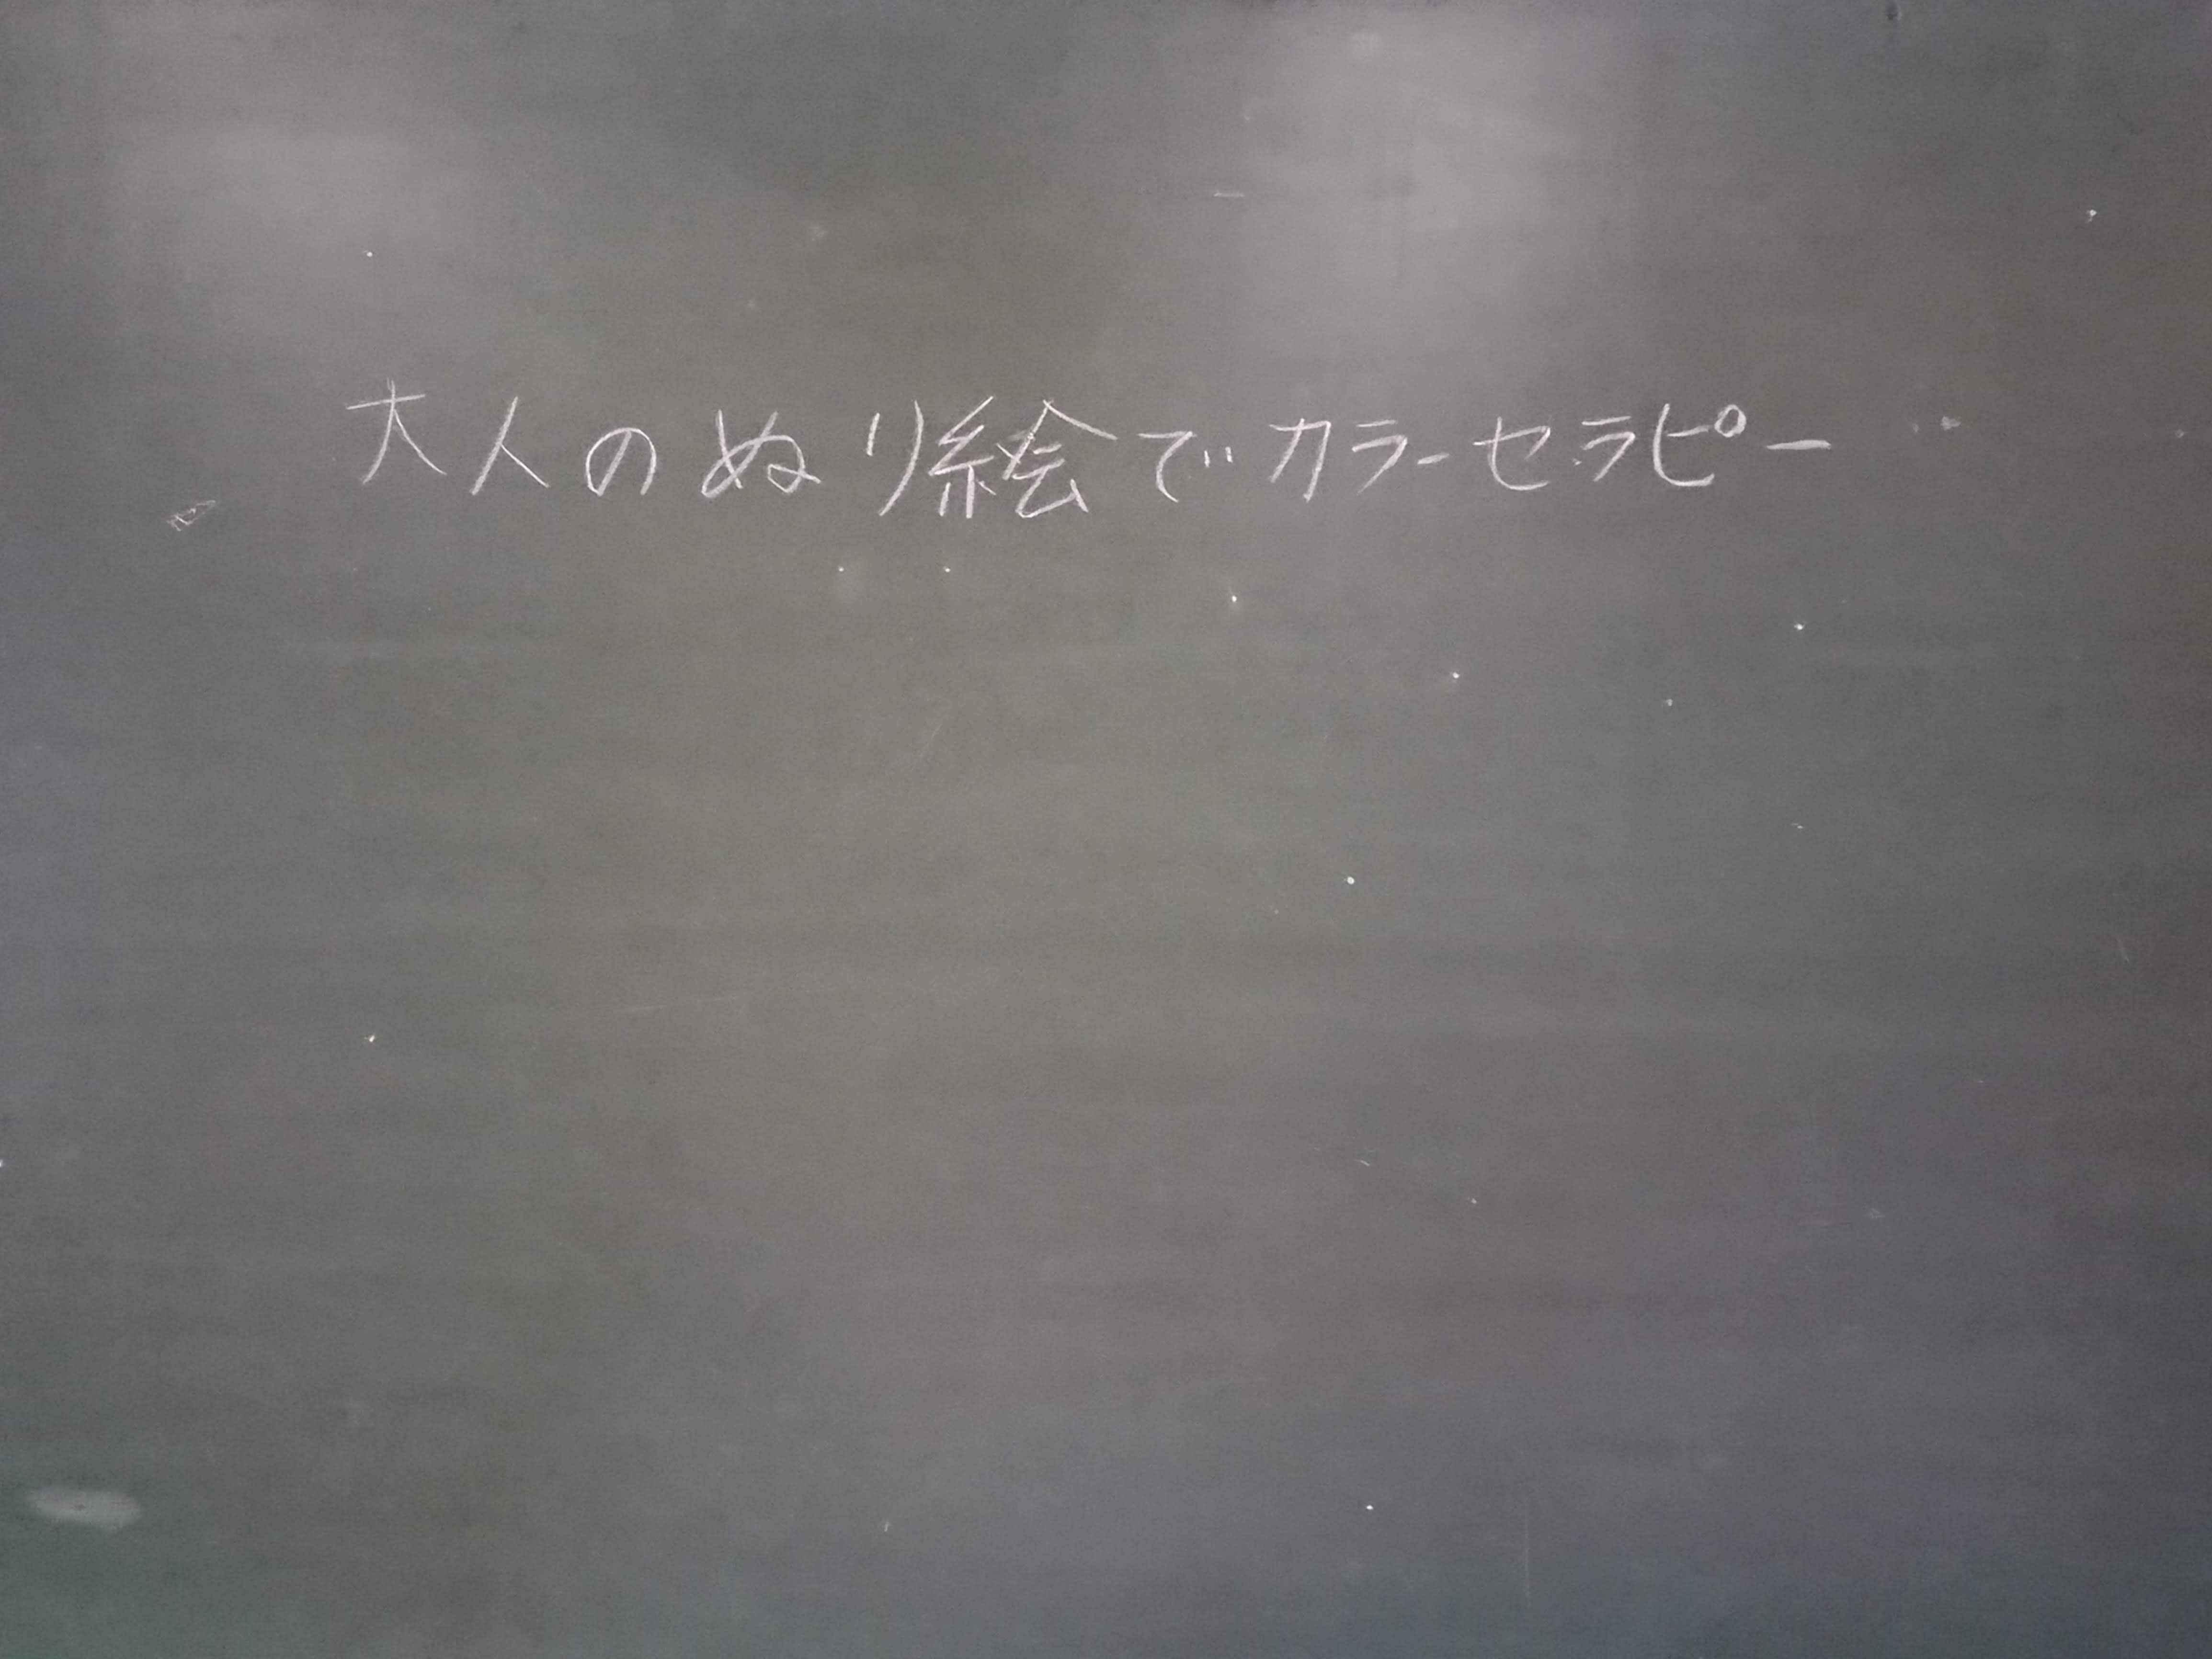 大人のぬり絵でカラーセラピー